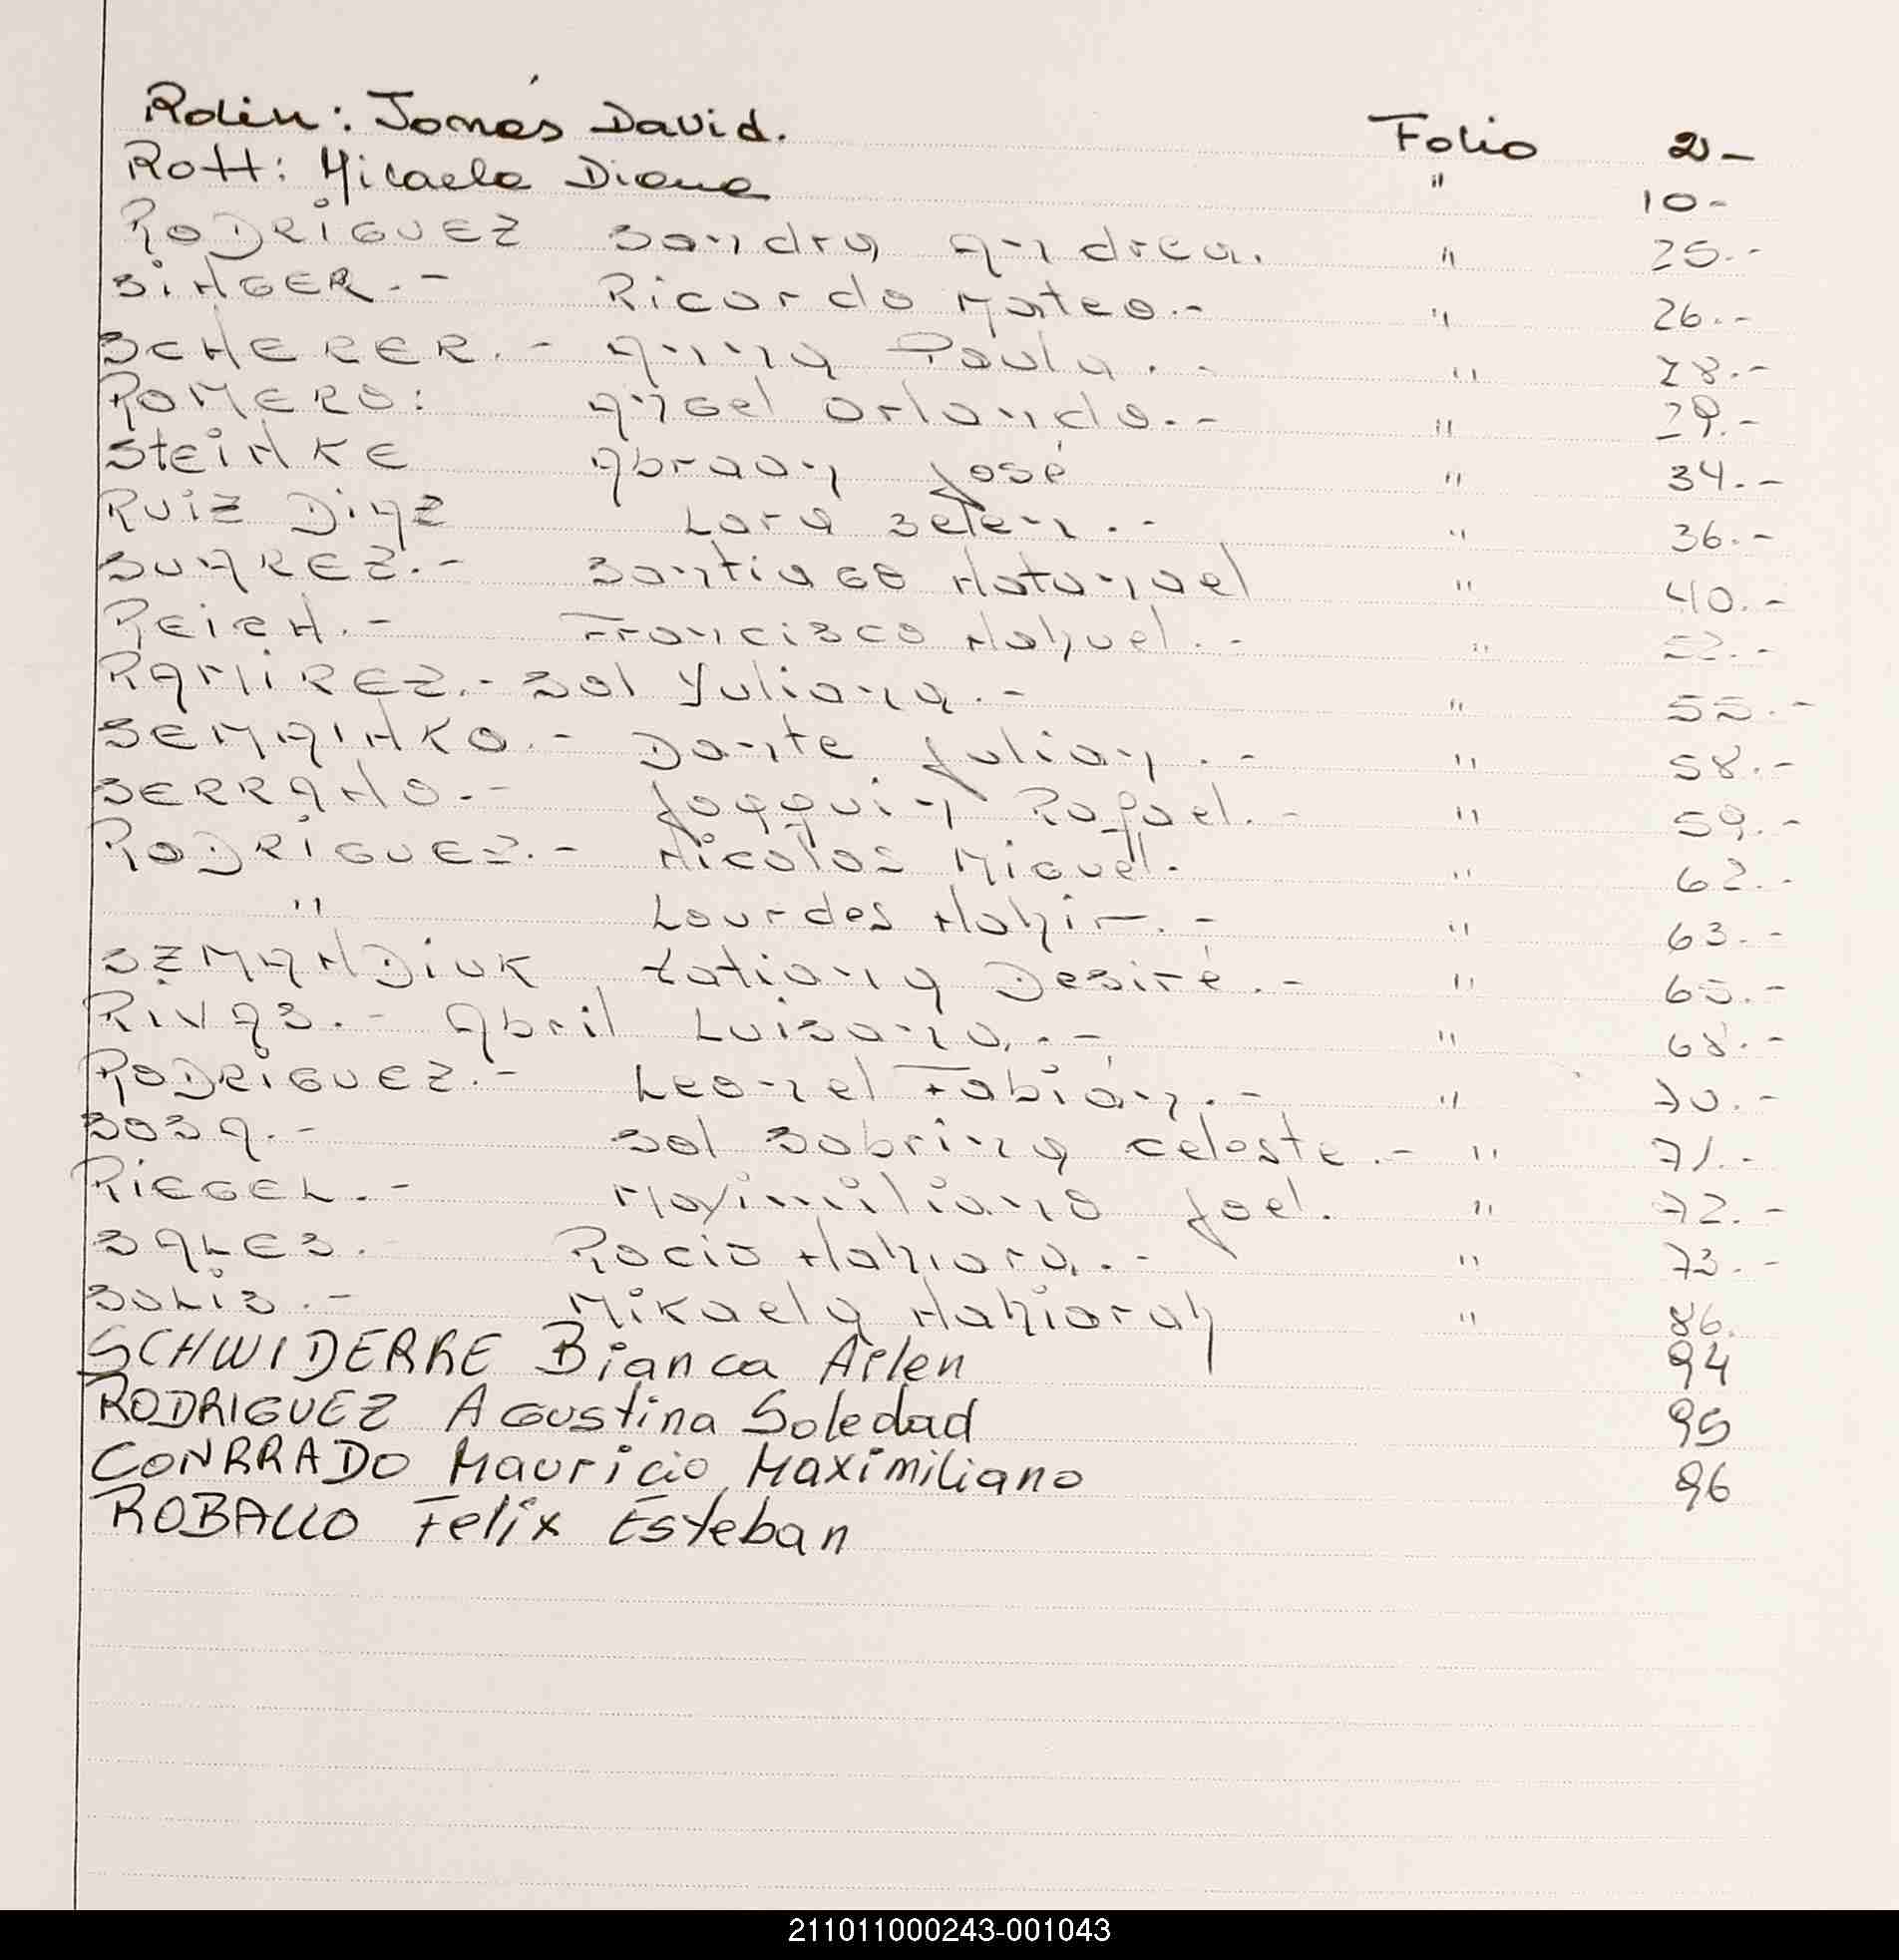 Rolin: Tomás David. Folio 2-
Rott: Micaela Diana " 10-
RODRIGUEZ Sandra Andrea. " 25.-
SINGER.- Ricardo Mateo.- " 26.-
SCHERER.- Anna Paula.- " 28.-
ROMERO: Angel Orlando.- " 29.-
STEINKE Abraan José " 34.-
RUIZ DIAZ Lara Belen.- " 36.-
SUAREZ.- Santiago Natanael " 40.-
REICH.- Francisco Nahuel.- "
RAMIREZ.- Sol Yuliana.- " 55.-
SEMAINKO.- Dante Julian.- " 58.-
SERRANO.- Joaquin Rafael.- " 59.-
RODRIGUEZ.- Nicolas Miguel. " 62.-
" Lourdes Nahir.- " 63.-
SZMANDIUK Tatiana Desiré.- " 65.-
RIVAS.- Abril Luisana.- " 68.-
RODRIGUEZ.- Leonel Fabián.- " 70.-
SOSA.- Sol Sabrina Celeste.- " 71.-
RIEGEL.- Maximiliano Joel. " 72.-
SALES. Rocio Nahiara.- " 73.-
SOLIS.- Mikaela Nahiarah " 86.
SCHWIDERRE Bianca Ailen 94
RODRIGUEZ Agustina Soledad 95
CONRRADO Mauricio Maximiliano 96
ROBALLO Felix Esteban
211011000243-001043